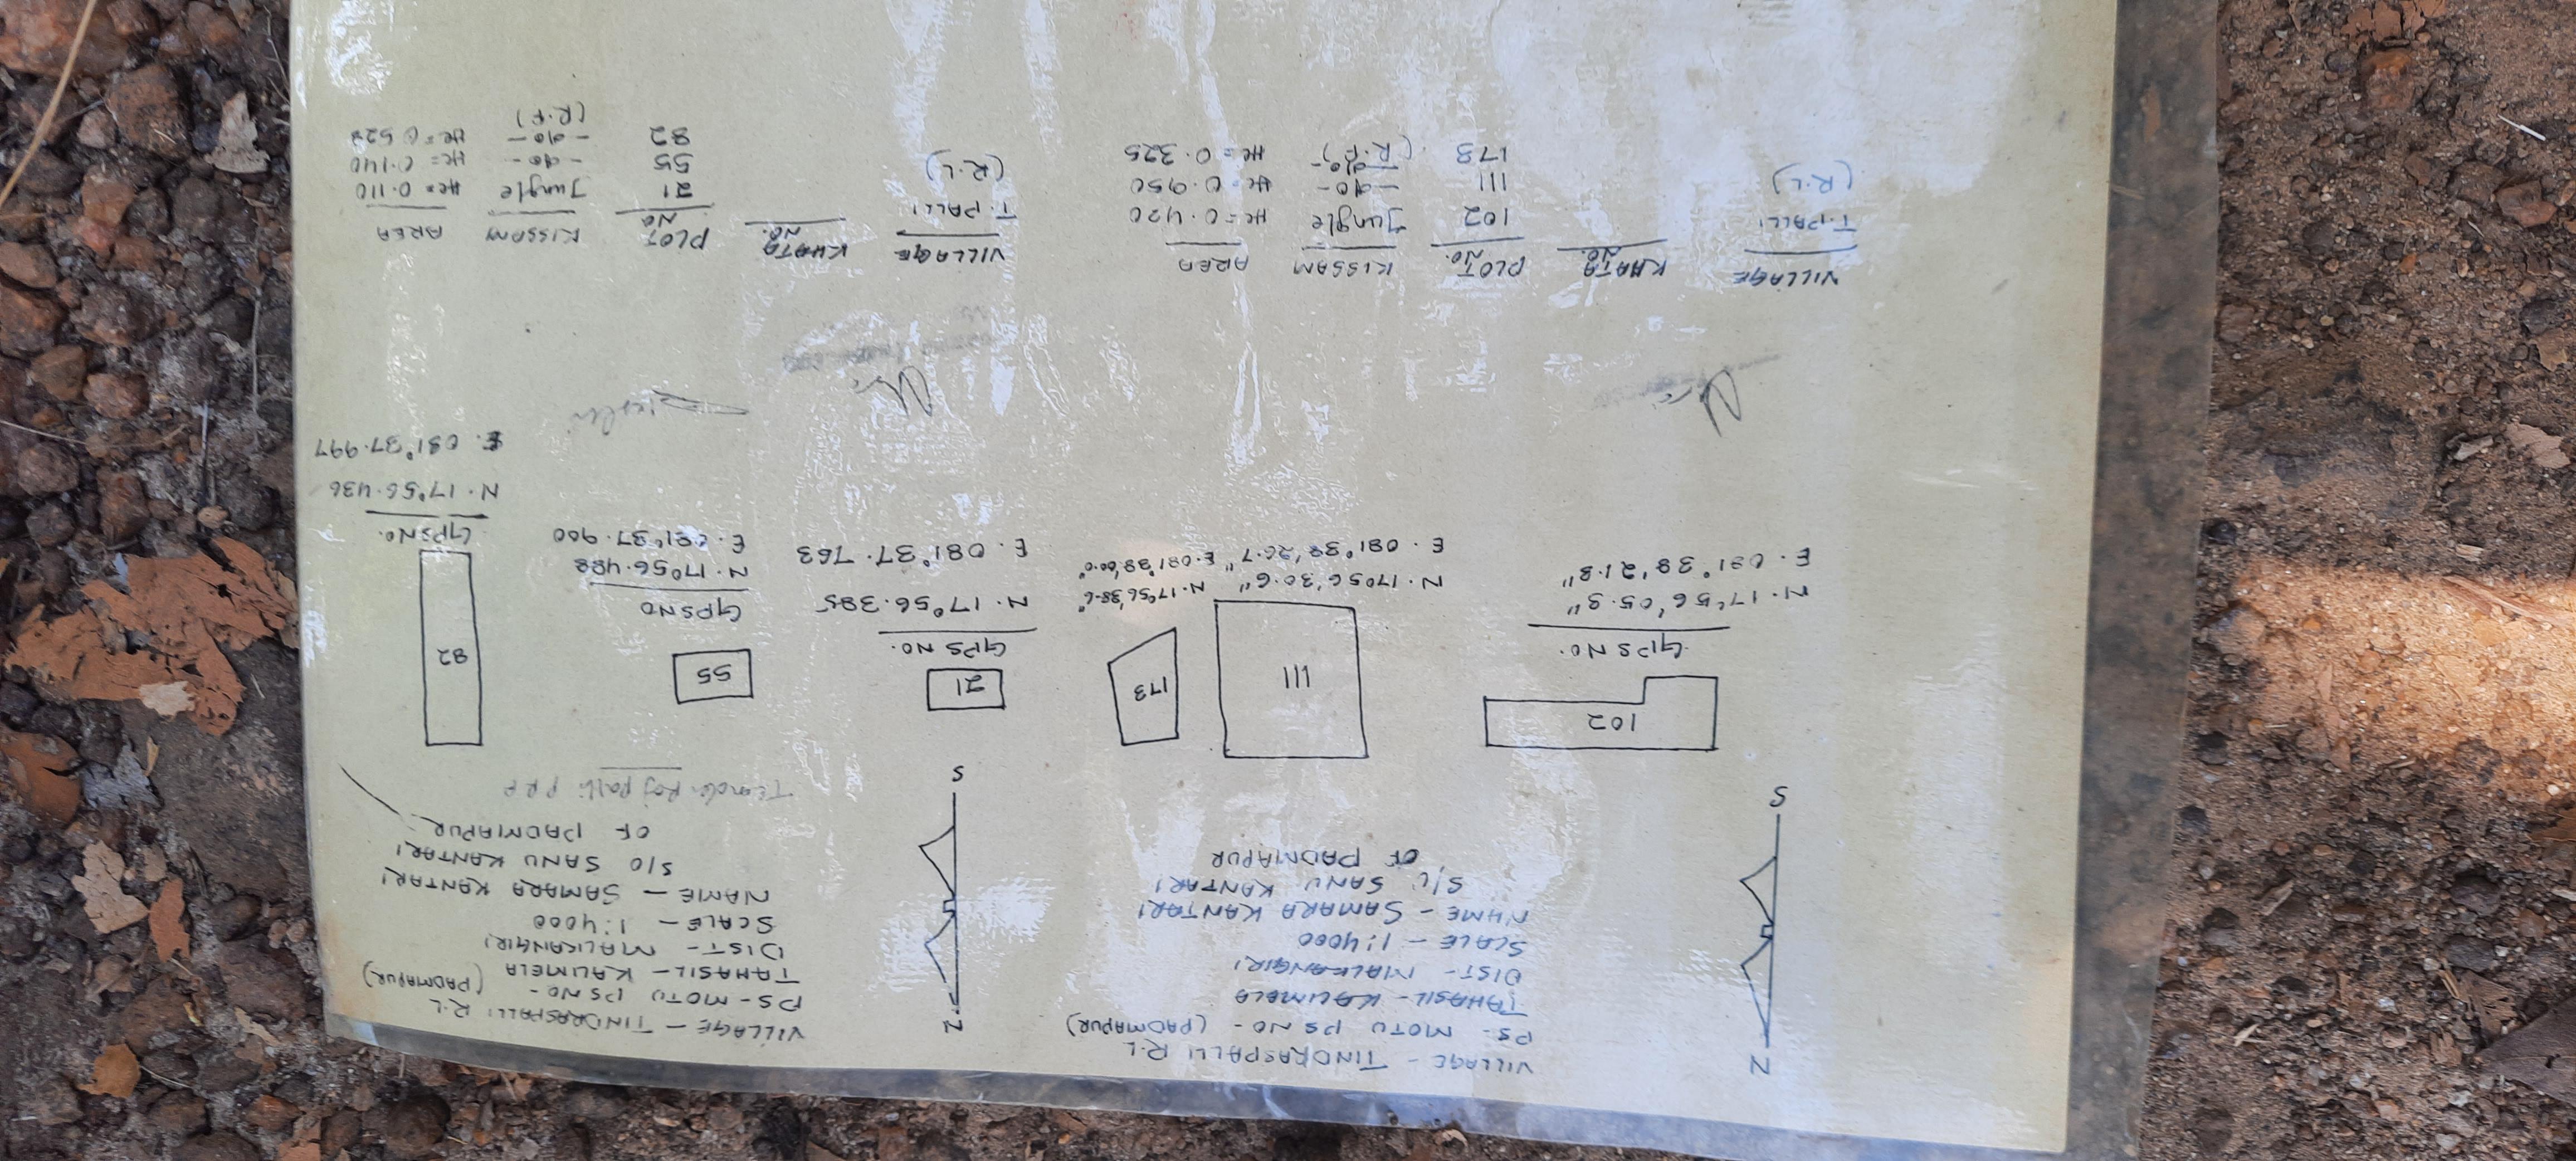 VILLAGE - TINDRASPALLI R.L
PS- MOTU PS NO - (PADMAPUR)
TAHASIL - KALIMELA
DIST - MALKANGIRI
SCALE - 1:4000
NAME - SAMARA KANTARI
S/O SANU KANTARI
OF PADMAPUR
N
S
102
GPS NO.
N. 17°56'05.9"
E. 081°38'21.8"
111
173
N. 17°56'30.6" N. 17°56'38.6"
E. 081°38'26.7" E. 081°38'00.0"
VILLAGE
KHATA NO.
PLOT NO.
KISSAM
AREA
T. PALLI 102 Jungle Hc = 0.420
(R.L) 111 -do- Hc = 0.950
173 -do- Hc = 0.325
(R.F)
VILLAGE - TINDRASPALLI R.L
PS- MOTU PS NO - (PADMAPUR)
TAHASIL - KALIMELA
DIST - MALKANGIRI
SCALE - 1:4000
NAME - SAMARA KANTARI
S/O SANU KANTARI
OF PADMAPUR
N
S
21
GPS NO.
N. 17°56.385
E. 081°37.763
55
GPS NO
N. 17°56.488
E. 081°37.900
82
GPS NO.
N. 17°56.436
E. 081°37.997
VILLAGE
KHATA NO.
PLOT NO
KISSAM
AREA
T. PALLI 21 Jungle Hc = 0.110
(R.L) 55 -do- Hc = 0.140
82 -do- Hc = 0.528
(R.F)